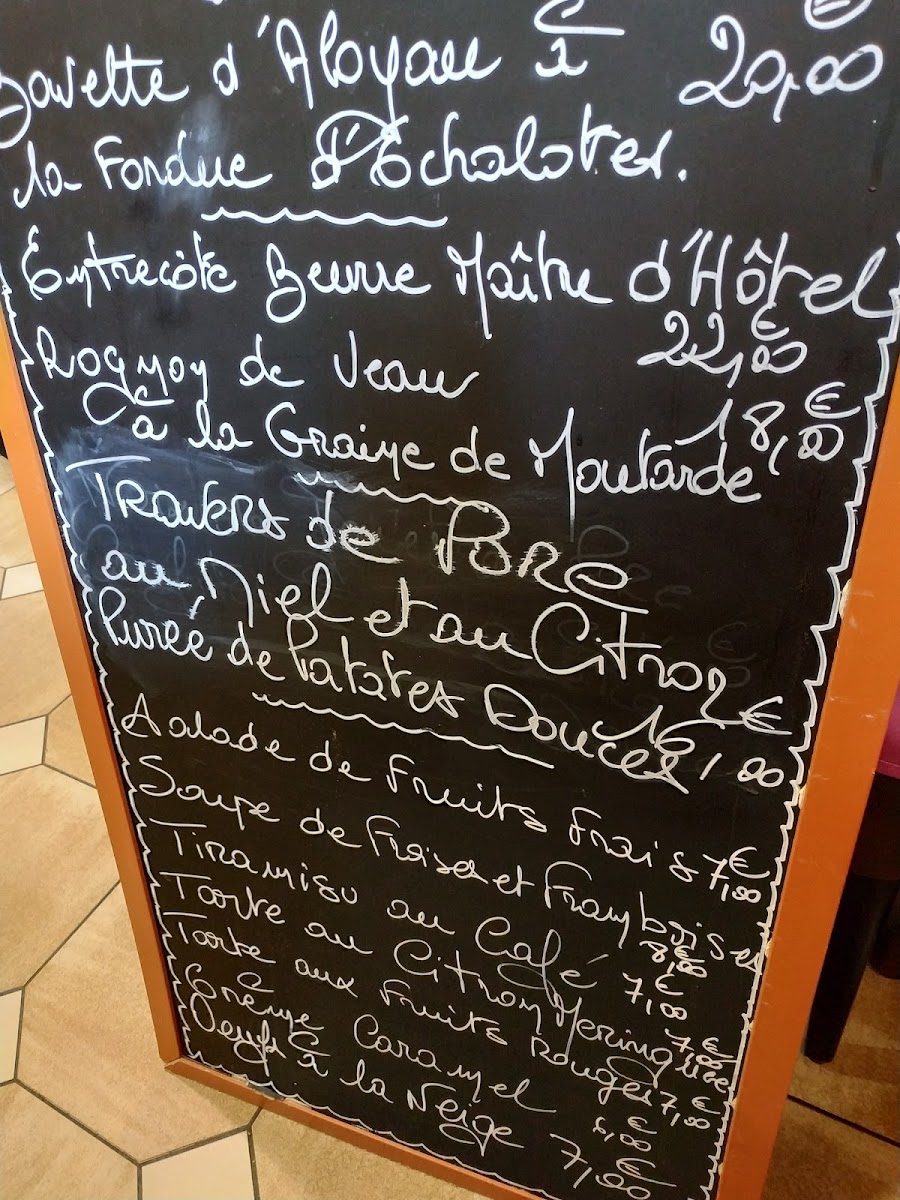 Bavette d'Aloyau à 20,00 €
la Fondue d'Echalotes.
Entrecôte Beurre Maître d'Hôtel
22,00 €
Rognon de Veau
à la Graine de Moutarde 18,00 €
Travers de Porc
au Miel et au Citron
Purée de Patates Douces 16,00 €
Salade de Fruits Frais 7,00 €
Soupe de Fraises et Framboises
8,00 €
Tiramisu au Café 7,00 €
Tarte au Citron Meringuée 7,00 €
Tarte aux Fruits Rouges 7,00 €
Crème Caramel €
Oeufs à la Neige 7,00 €